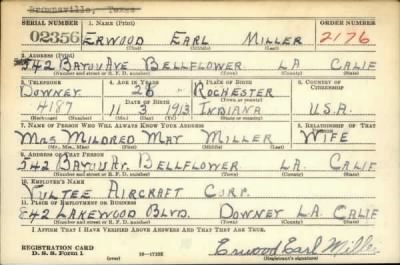 Brownsville, Texas
SERIAL NUMBER 1. NAME (Print) ORDER NUMBER
02356 ERWOOD EARL MILLER 2176
(First) (Middle) (Last)
2. ADDRESS (Print)
542 BAYOU AVE BELLFLOWER LA CALIF
(Number and street or R. F. D. number) (Town) (County) (State)
3. TELEPHONE 4. AGE IN YEARS 5. PLACE OF BIRTH 6. COUNTRY OF CITIZENSHIP
DOWNEY 28 ROCHESTER
(Town or county)
DATE OF BIRTH
4187 11 3 1913 INDIANA U.S.A.
(Mo.) (Day) (Yr.) (State or country)
7. NAME OF PERSON WHO WILL ALWAYS KNOW YOUR ADDRESS 8. RELATIONSHIP OF THAT PERSON
MRS MILDRED MAY MILLER WIFE
(Mr., Mrs., Miss) (First) (Middle) (Last)
9. ADDRESS OF THAT PERSON
542 BAYOU AV. BELLFLOWER LA. CALIF
(Number and street or R. F. D. number) (Town) (County) (State)
10. EMPLOYER'S NAME
VULTEE AIRCRAFT CORP.
11. PLACE OF EMPLOYMENT OR BUSINESS
842 LAKEWOOD BLVD. DOWNEY L.A. CALIF
(Number and street or R. F. D. number) (Town) (County) (State)
I AFFIRM THAT I HAVE VERIFIED ABOVE ANSWERS AND THAT THEY ARE TRUE.
REGISTRATION CARD
D. S. S. Form 1 (over) 16—17105 Erwood Earl Miller
(Registrant's signature)